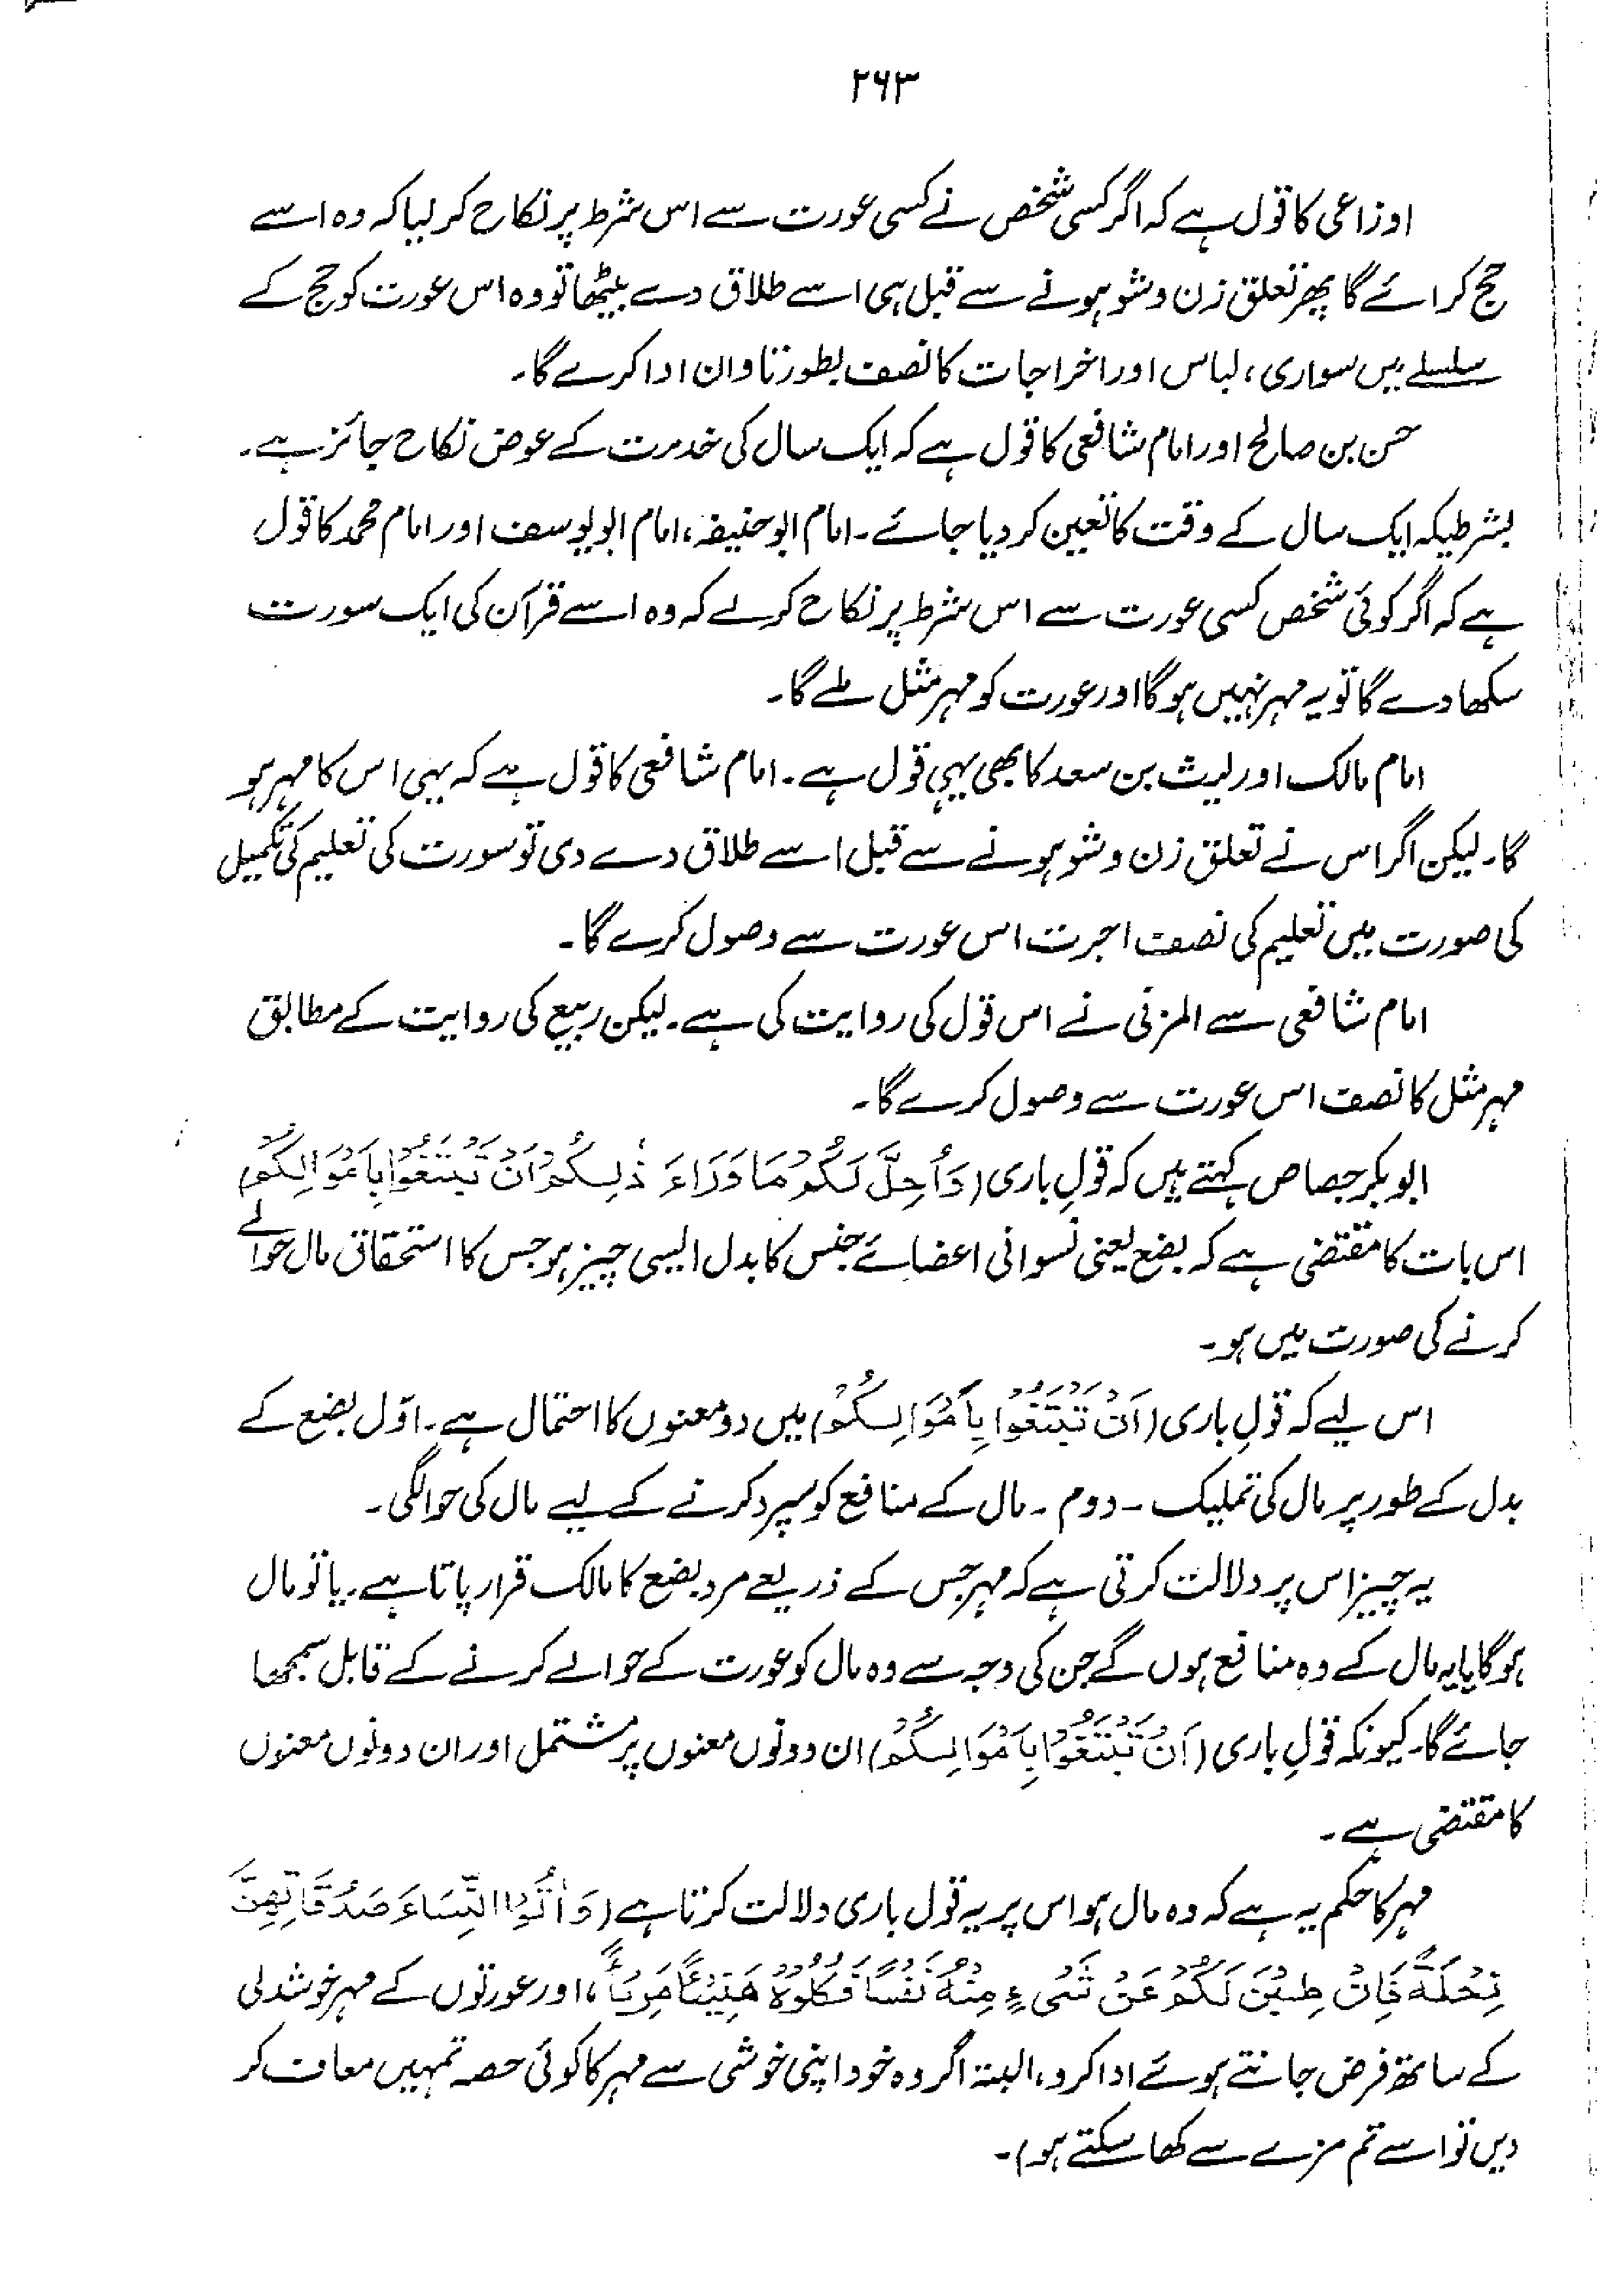 ۲۶۳
اوزاعی کا قول ہے کہ اگر کسی شخص نے کسی عورت سے اس شرط پر نکاح کر لیا کہ وہ اسے
حج کرائے گا پھر تعلق زن و شو ہونے سے قبل ہی اسے طلاق دے بیٹھا تو وہ اس عورت کو حج کے
سلسلے میں سواری، لباس اور اخراجات کا نصف بطور تاوان ادا کرے گا۔
حسن بن صالح اور امام شافعی کا قول ہے کہ ایک سال کی خدمت کے عوض نکاح جائز ہے۔
بشرطیکہ ایک سال کے وقت کا تعین کر دیا جائے۔ امام ابو حنیفہ، امام ابو یوسف اور امام محمد کا قول
ہے کہ اگر کوئی شخص کسی عورت سے اس شرط پر نکاح کر لے کہ وہ اسے قرآن کی ایک سورت
سکھا دے گا تو یہ مہر نہیں ہوگا اور عورت کو مہر مثل ملے گا۔
امام مالک اور لیث بن سعد کا بھی یہی قول ہے۔ امام شافعی کا قول ہے کہ یہی اس کا مہر ہو
گا۔ لیکن اگر اس نے تعلق زن و شو ہونے سے قبل اسے طلاق دے دی تو سورت کی تعلیم کی تکمیل
کی صورت میں تعلیم کی نصف اجرت اس عورت سے وصول کرے گا۔
امام شافعی سے المزنی نے اس قول کی روایت کی ہے۔ لیکن ربیع کی روایت کے مطابق
مہر مثل کا نصف اس عورت سے وصول کرے گا۔
ابو بکر جصاص کہتے ہیں کہ قولِ باری (وَاُحِلَّ لَكُمْ مَا وَرَاءَ ذٰلِكُمْ اَنْ تَبْتَغُوْا بِاَمْوَالِكُمْ)
اس بات کا مقتضی ہے کہ بضع یعنی نسوانی اعضائے جنس کا بدل ایسی چیز ہو جس کا استحقاق مال حوالے
کرنے کی صورت میں ہو۔
اس لیے کہ قولِ باری (اَنْ تَبْتَغُوْا بِاَمْوَالِكُمْ) میں دو معنوں کا احتمال ہے۔ اوّل بضع کے
بدل کے طور پر مال کی تملیک ۔ دوم ۔ مال کے منافع کو سپرد کرنے کے لیے مال کی حوالگی۔
یہ چیز اس پر دلالت کرتی ہے کہ مہر جس کے ذریعے مرد بضع کا مالک قرار پاتا ہے۔ یا تو مال
ہوگا یا یہ مال کے وہ منافع ہوں گے جن کی وجہ سے وہ مال کو عورت کے حوالے کرنے کے قابل سمجھا
جائے گا۔ کیونکہ قولِ باری (اَنْ تَبْتَغُوْا بِاَمْوَالِكُمْ) ان دونوں معنوں پر مشتمل اور ان دونوں معنوں
کا مقتضی ہے۔
مہر کا حکم یہ ہے کہ وہ مال ہو اس پر یہ قول باری دلالت کرتا ہے (وَاٰتُوا النِّسَاءَ صَدُقَاتِهِنَّ
نِحْلَةً فَاِنْ طِبْنَ لَكُمْ عَنْ شَیْءٍ مِنْهُ نَفْسًا فَكُلُوْهُ هَنِيْئًا مَرِيْئًا، اور عورتوں کے مہر خوشدلی
کے ساتھ فرض جانتے ہوئے ادا کرو، البتہ اگر وہ خود اپنی خوشی سے مہر کا کوئی حصہ تمہیں معاف کر
دیں تو اسے تم مزے سے کھا سکتے ہو)۔